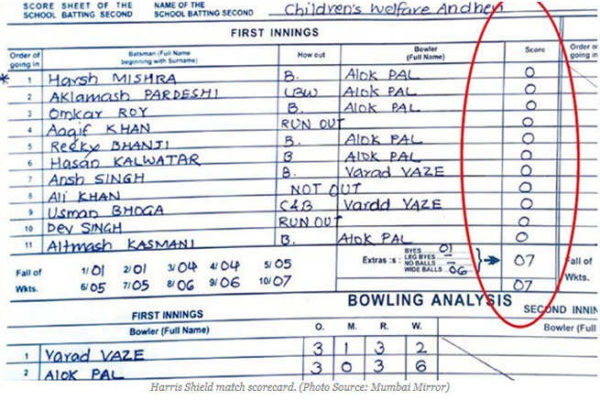 SCORE SHEET OF THE SCHOOL BATTING SECOND NAME OF THE SCHOOL BATTING SECOND Children's Welfare Andheri
FIRST INNINGS
Order of going in Batsman (Full Name beginning with Surname) How out Bowler (Full Name) Score Order o going in
* 1 Harsh MISHRA B. Alok PAL 0
2 Aklamash PARDESHI LBW Alok PAL 0
3 Omkar ROY B. Alok PAL 0
4 Aaqif KHAN RUN OUT 0
5 Recky BHANJI B. Alok PAL 0
6 Hasan KALWATAR B Alok PAL 0
7 Ansh SINGH B. Varad VAZE 0
8 Ali KHAN NOT OUT 0
9 Usman BHOGA C&B Varad VAZE 0
10 Dev SINGH RUN OUT 0
11 Altmash KASMANI B. Alok PAL 0
Fall of 1/01 2/01 3/04 4/04 5/05 Extras :s : BYES 01 LEG BYES — NO BALLS — WIDE BALLS 06 07 Fall of
Wkts. 6/05 7/05 8/06 9/06 10/07 07 Wkts.
BOWLING ANALYSIS
FIRST INNINGS SECOND INNIN
Bowler (Full Name) O. M. R. W. Bowler (Full
1 Varad VAZE 3 1 3 2
2 Alok PAL 3 0 3 6
Harris Shield match scorecard. (Photo Source: Mumbai Mirror)